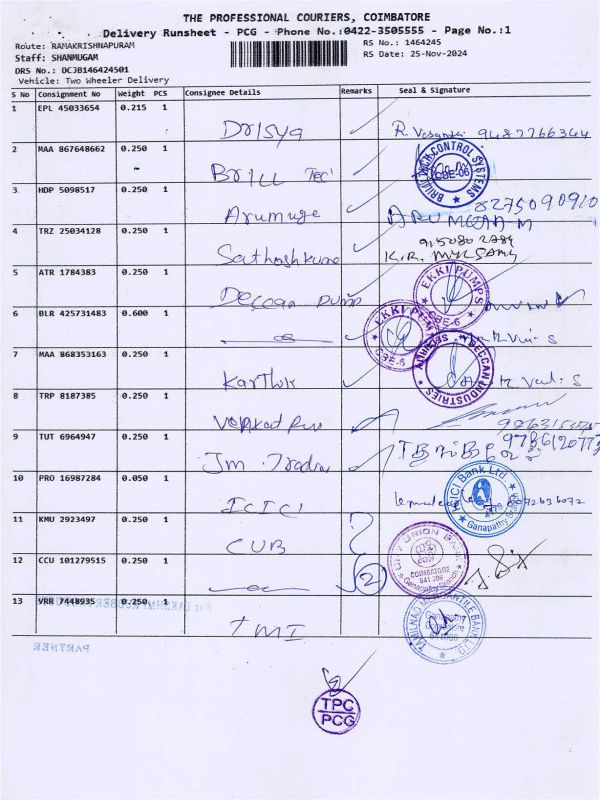 THE PROFESSIONAL COURIERS, COIMBATORE
Delivery Runsheet - PCG - Phone No.:0422-3505555 - Page No.:1
Route: RAMAKRISHNAPURAM
RS No.: 1464245
Staff: SHANMUGAM
RS Date: 25-Nov-2024
DRS No.: DCJB146424501
Vehicle: Two Wheeler Delivery
S No Consignment No Weight PCS Consignee Details Remarks Seal & Signature
1 EPL 45033654 0.215 1 Drisya 9487766344
2 MAA 867648662 0.250 1 Brill Tec
BRILLTECH CONTROL SYSTEMS CBE-06
3 HDP 5098517 0.250 1 Arumuge ARUMUGAM-M 8275090910
4 TRZ 25034128 0.250 1 Sathoshkume K.R.
5 ATR 1784383 0.250 1 Deccan pump
EKKI PUMPS CBE-6
6 BLR 425731483 0.600 1
EKKI PUMPS CBE-6
7 MAA 868353163 0.250 1 Karthik
SECURITY DECCAN INDUSTRIES
8 TRP 8187385 0.250 1
9 TUT 6964947 0.250 1 Jm Trades
10 PRO 16987284 0.050 1 ICICI
ICICI Bank Ltd. Ganapathy Branch
11 KMU 2923497 0.250 1 CUB
CITY UNION BANK COIMBATORE 641 006 Ganapathy Branch
12 CCU 101279515 0.250 1 2
13 VRR 7448935 0.250 1 TMI
TAMILNAD MERCANTILE BANK LTD. Ganapathy
PARTNER
TPC
PCG